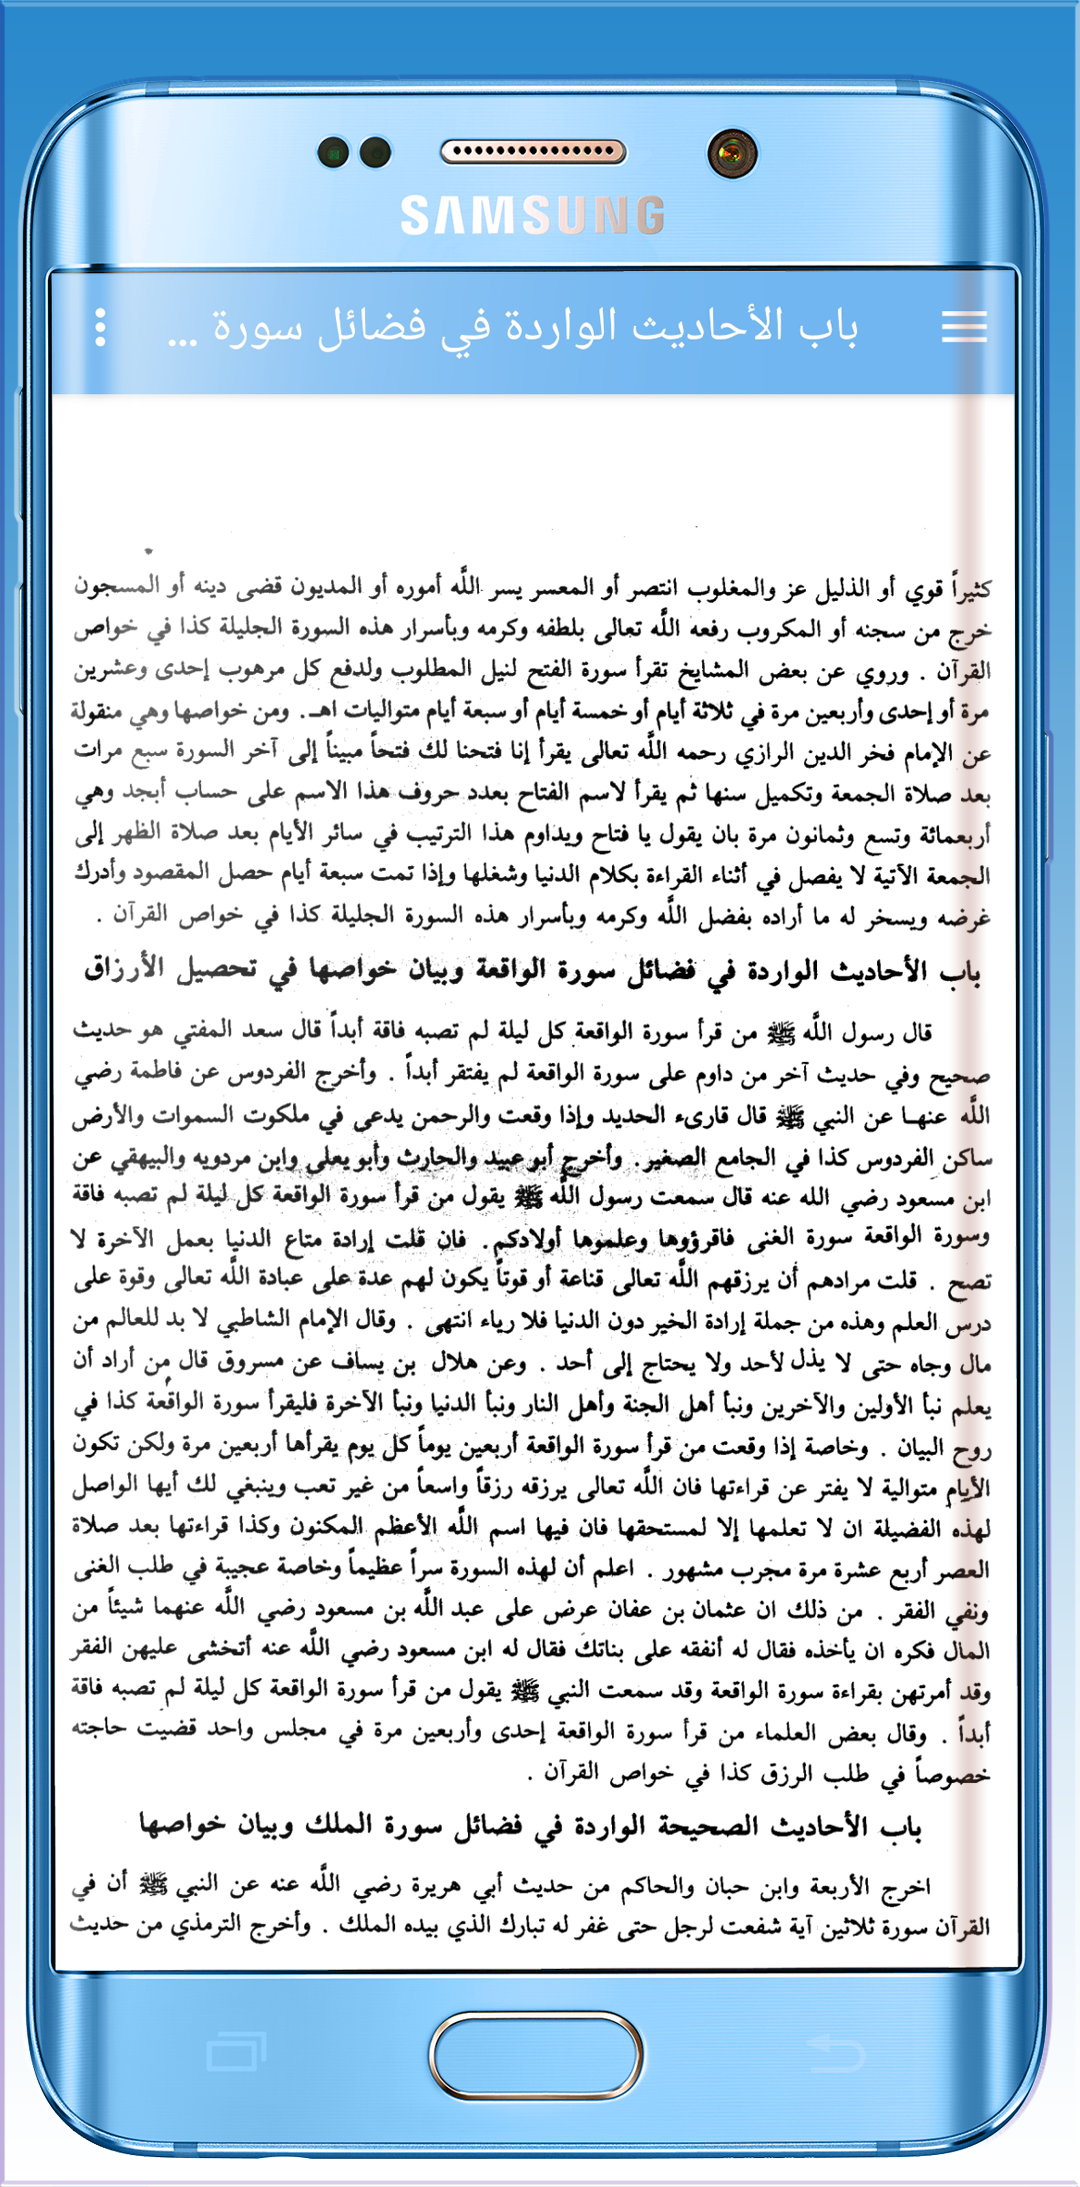 SAMSUNG
باب الأحاديث الواردة في فضائل سورة ...
كثيراً قوي أو الذليل عز والمغلوب انتصر أو المعسر يسر اللَّه أموره أو المديون قضى دينه أو المسجون
خرج من سجنه أو المكروب رفعه اللَّه تعالى بلطفه وكرمه وبأسرار هذه السورة الجليلة كذا في خواص
القرآن . وروي عن بعض المشايخ تقرأ سورة الفتح لنيل المطلوب ولدفع كل مرهوب إحدى وعشرين
مرة أو إحدى وأربعين مرة في ثلاثة أيام أو خمسة أيام أو سبعة أيام متواليات اهـ. ومن خواصها وهي منقولة
عن الإمام فخر الدين الرازي رحمه اللَّه تعالى يقرأ إنا فتحنا لك فتحاً مبيناً إلى آخر السورة سبع مرات
بعد صلاة الجمعة وتكميل سنها ثم يقرأ لاسم الفتاح بعدد حروف هذا الاسم على حساب أبجد وهي
أربعمائة وتسع وثمانون مرة بان يقول يا فتاح ويداوم هذا الترتيب في سائر الأيام بعد صلاة الظهر إلى
الجمعة الآتية لا يفصل في أثناء القراءة بكلام الدنيا وشغلها وإذا تمت سبعة أيام حصل المقصود وأدرك
غرضه ويسخر له ما أراده بفضل اللَّه وكرمه وبأسرار هذه السورة الجليلة كذا في خواص القرآن .
باب الأحاديث الواردة في فضائل سورة الواقعة وبيان خواصها في تحصيل الأرزاق
قال رسول اللَّه ﷺ من قرأ سورة الواقعة كل ليلة لم تصبه فاقة أبداً قال سعد المفتي هو حديث
صحيح وفي حديث آخر من داوم على سورة الواقعة لم يفتقر أبداً . وأخرج الفردوس عن فاطمة رضي
اللَّه عنهـا عن النبي ﷺ قال قارىء الحديد وإذا وقعت والرحمن يدعى في ملكوت السموات والأرض
ساكن الفردوس كذا في الجامع الصغير. وأخرج أبو عبيد والحارث وأبو يعلى وابن مردويه والبيهقي عن
ابن مسعود رضي الله عنه قال سمعت رسول اللَّه ﷺ يقول من قرأ سورة الواقعة كل ليلة لم تصبه فاقة
وسورة الواقعة سورة الغنى فاقرؤوها وعلموها أولادكم. فان قلت إرادة متاع الدنيا بعمل الآخرة لا
تصح . قلت مرادهم أن يرزقهم اللَّه تعالى قناعة أو قوتاً يكون لهم عدة على عبادة اللَّه تعالى وقوة على
درس العلم وهذه من جملة إرادة الخير دون الدنيا فلا رياء انتهى . وقال الإمام الشاطبي لا بد للعالم من
مال وجاه حتى لا يذل لأحد ولا يحتاج إلى أحد . وعن هلال بن يساف عن مسروق قال من أراد أن
يعلم نبأ الأولين والآخرين ونبأ أهل الجنة وأهل النار ونبأ الدنيا ونبأ الآخرة فليقرأ سورة الواقعة كذا في
روح البيان . وخاصة إذا وقعت من قرأ سورة الواقعة أربعين يوماً كل يوم يقرأها أربعين مرة ولكن تكون
الأيام متوالية لا يفتر عن قراءتها فان اللَّه تعالى يرزقه رزقاً واسعاً من غير تعب وينبغي لك أيها الواصل
لهذه الفضيلة ان لا تعلمها إلا لمستحقها فان فيها اسم اللَّه الأعظم المكنون وكذا قراءتها بعد صلاة
العصر أربع عشرة مرة مجرب مشهور . اعلم أن لهذه السورة سراً عظيماً وخاصة عجيبة في طلب الغنى
ونفي الفقر . من ذلك ان عثمان بن عفان عرض على عبد اللَّه بن مسعود رضي اللَّه عنهما شيئاً من
المال فكره ان يأخذه فقال له أنفقه على بناتك فقال له ابن مسعود رضي اللَّه عنه أتخشى عليهن الفقر
وقد أمرتهن بقراءة سورة الواقعة وقد سمعت النبي ﷺ يقول من قرأ سورة الواقعة كل ليلة لم تصبه فاقة
أبداً . وقال بعض العلماء من قرأ سورة الواقعة إحدى وأربعين مرة في مجلس واحد قضيت حاجته
خصوصاً في طلب الرزق كذا في خواص القرآن .
باب الأحاديث الصحيحة الواردة في فضائل سورة الملك وبيان خواصها
اخرج الأربعة وابن حبان والحاكم من حديث أبي هريرة رضي اللَّه عنه عن النبي ﷺ أن في
القرآن سورة ثلاثين آية شفعت لرجل حتى غفر له تبارك الذي بيده الملك . وأخرج الترمذي من حديث